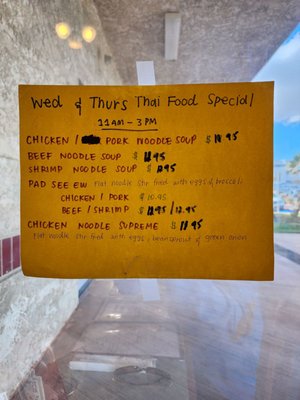 Wed & Thurs Thai Food Special
11AM - 3PM
CHICKEN / PORK NOODLE SOUP $ 10.95
BEEF NOODLE SOUP $ 11.95
SHRIMP NOODLE SOUP $ 12.95
PAD SEE EW Flat noodle stir fried with eggs & broccoli
CHICKEN / PORK $ 10.95
BEEF / SHRIMP $ 11.95 / 12.95
CHICKEN NOODLE SUPREME $ 11.95
Flat noodle stir fried with eggs, beansprout & green onion